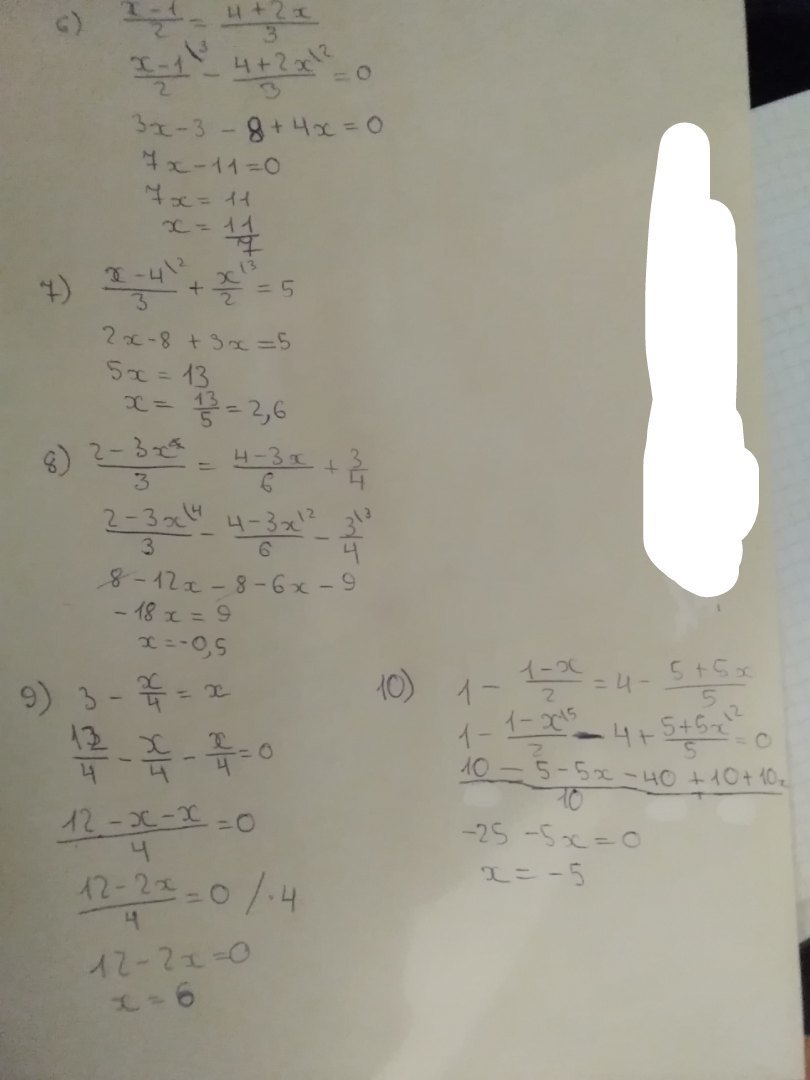 6) x-1/2 = 4+2x/3
x-1\3/2 - 4+2x\2/3 = 0
3x-3 - 8+4x=0
7x-11=0
7x = 11
x = 11/7
7) x-4\2/3 + x\3/2 = 5
2x-8 + 3x =5
5x = 13
x = 13/5 = 2,6
8) 2-3x/3 = 4-3x/6 + 3/4
2-3x\4/3 - 4-3x\2/6 - 3\3/4
8-12x-8-6x-9
-18x = 9
x=-0,5
9) 3 - x/4 = x
12/4 - x/4 - x/4 = 0
12-x-x/4 = 0
12-2x/4 = 0 /·4
12-2x=0
x = 6
10) 1 - 1-x/2 = 4 - 5+5x/5
1 - 1-x\5/2 - 4 + 5+5x\2/5 = 0
10 - 5-5x-40+10+10x/10
-25-5x=0
x = -5